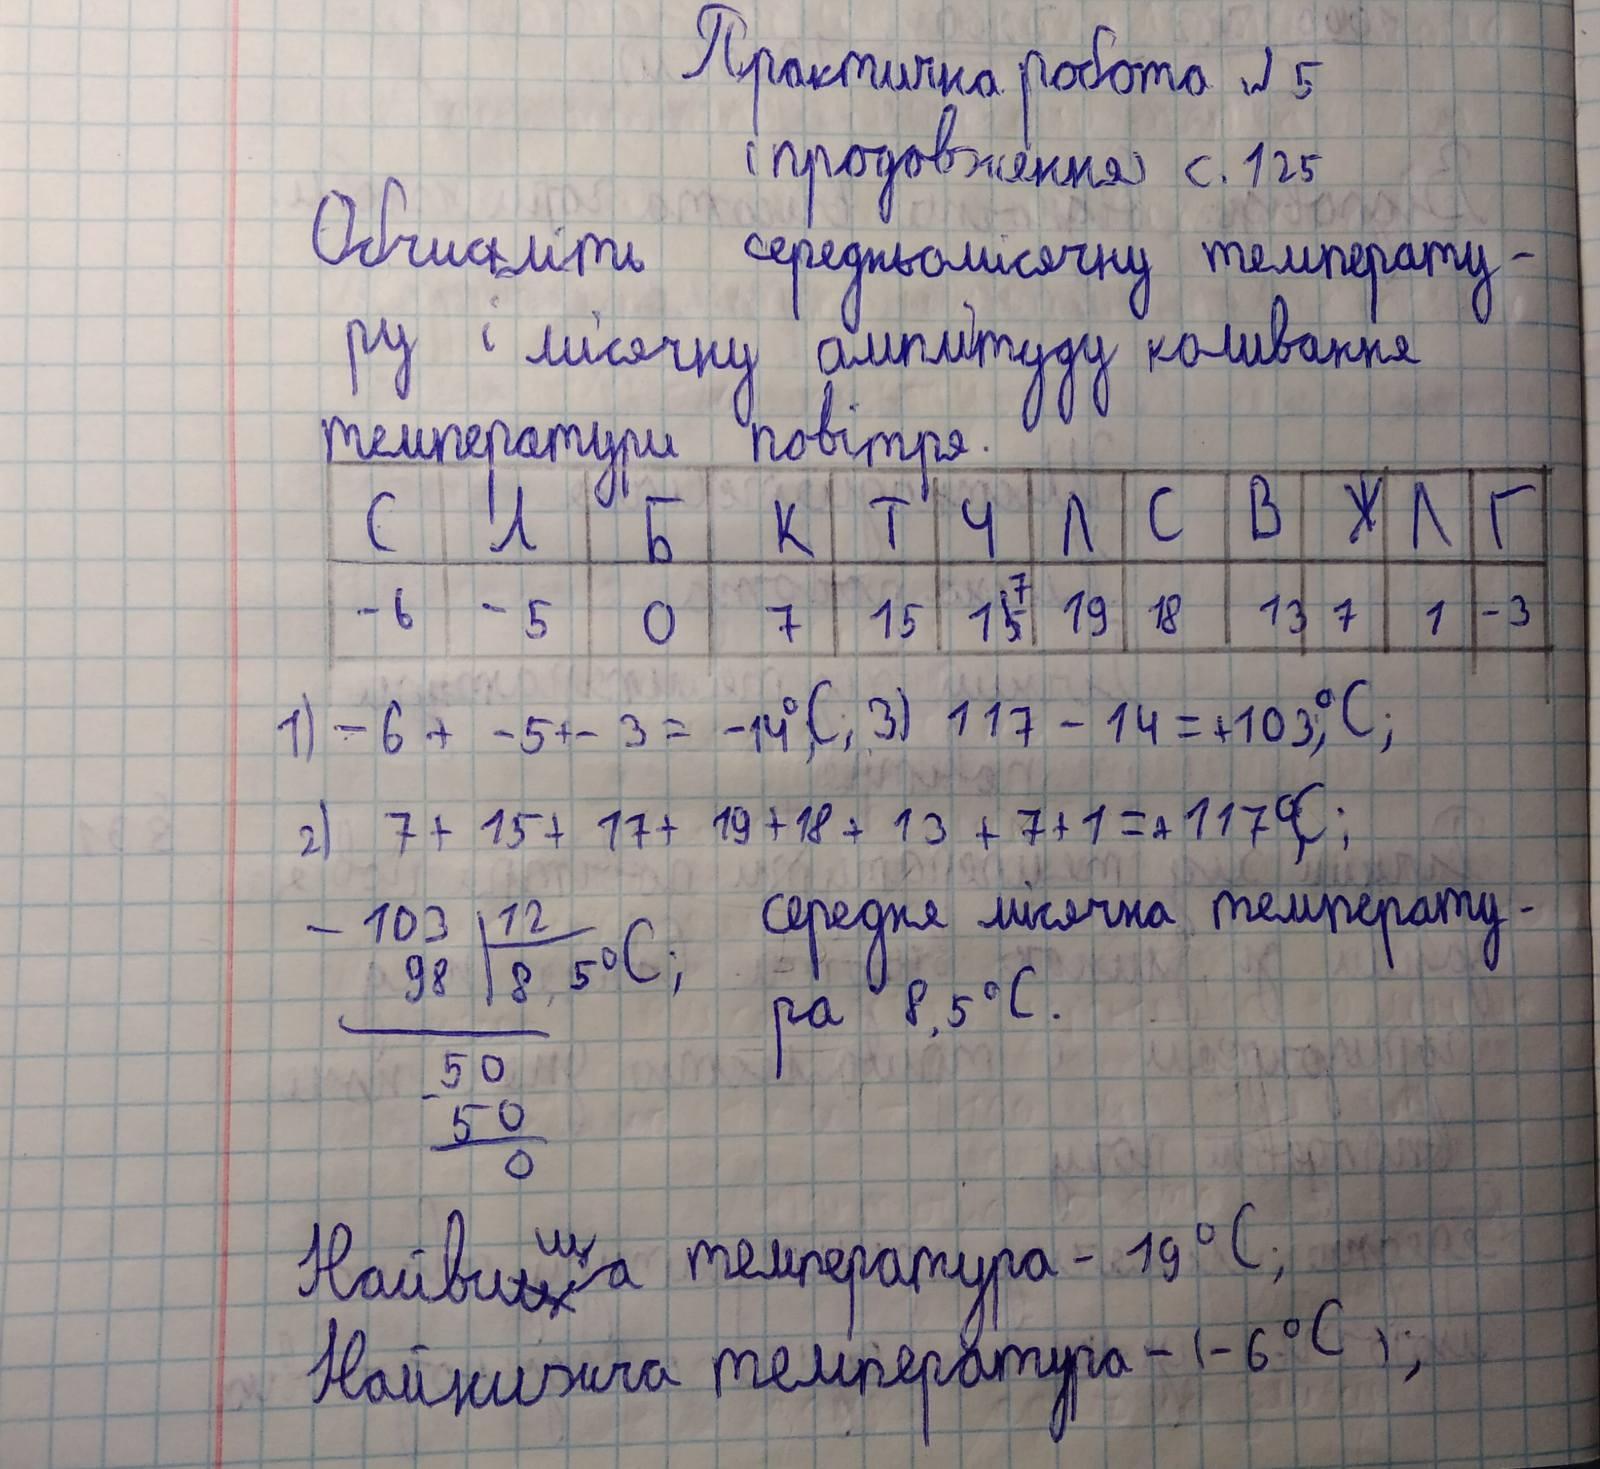 Практична робота №5
(продовження) с. 125
Обчисліть середньомісячну температу-
ру і місячну амплітуду коливання
температури повітря.
С Л Б К Т Ч Л С В Ж Л Г
-6 -5 0 7 15 17 19 18 13 7 1 -3
1) -6 + -5 + -3 = -14°C; 3) 117 - 14 = +103°C;
2) 7 + 15 + 17 + 19 + 18 + 13 + 7 + 1 = +117°C;
- 103 | 12
98 | 8,5°C;
середня місячна температу-
ра 8,5°C.
- 50
50
0
Найвища температура - 19°C;
Найнижча температура - (-6°C);